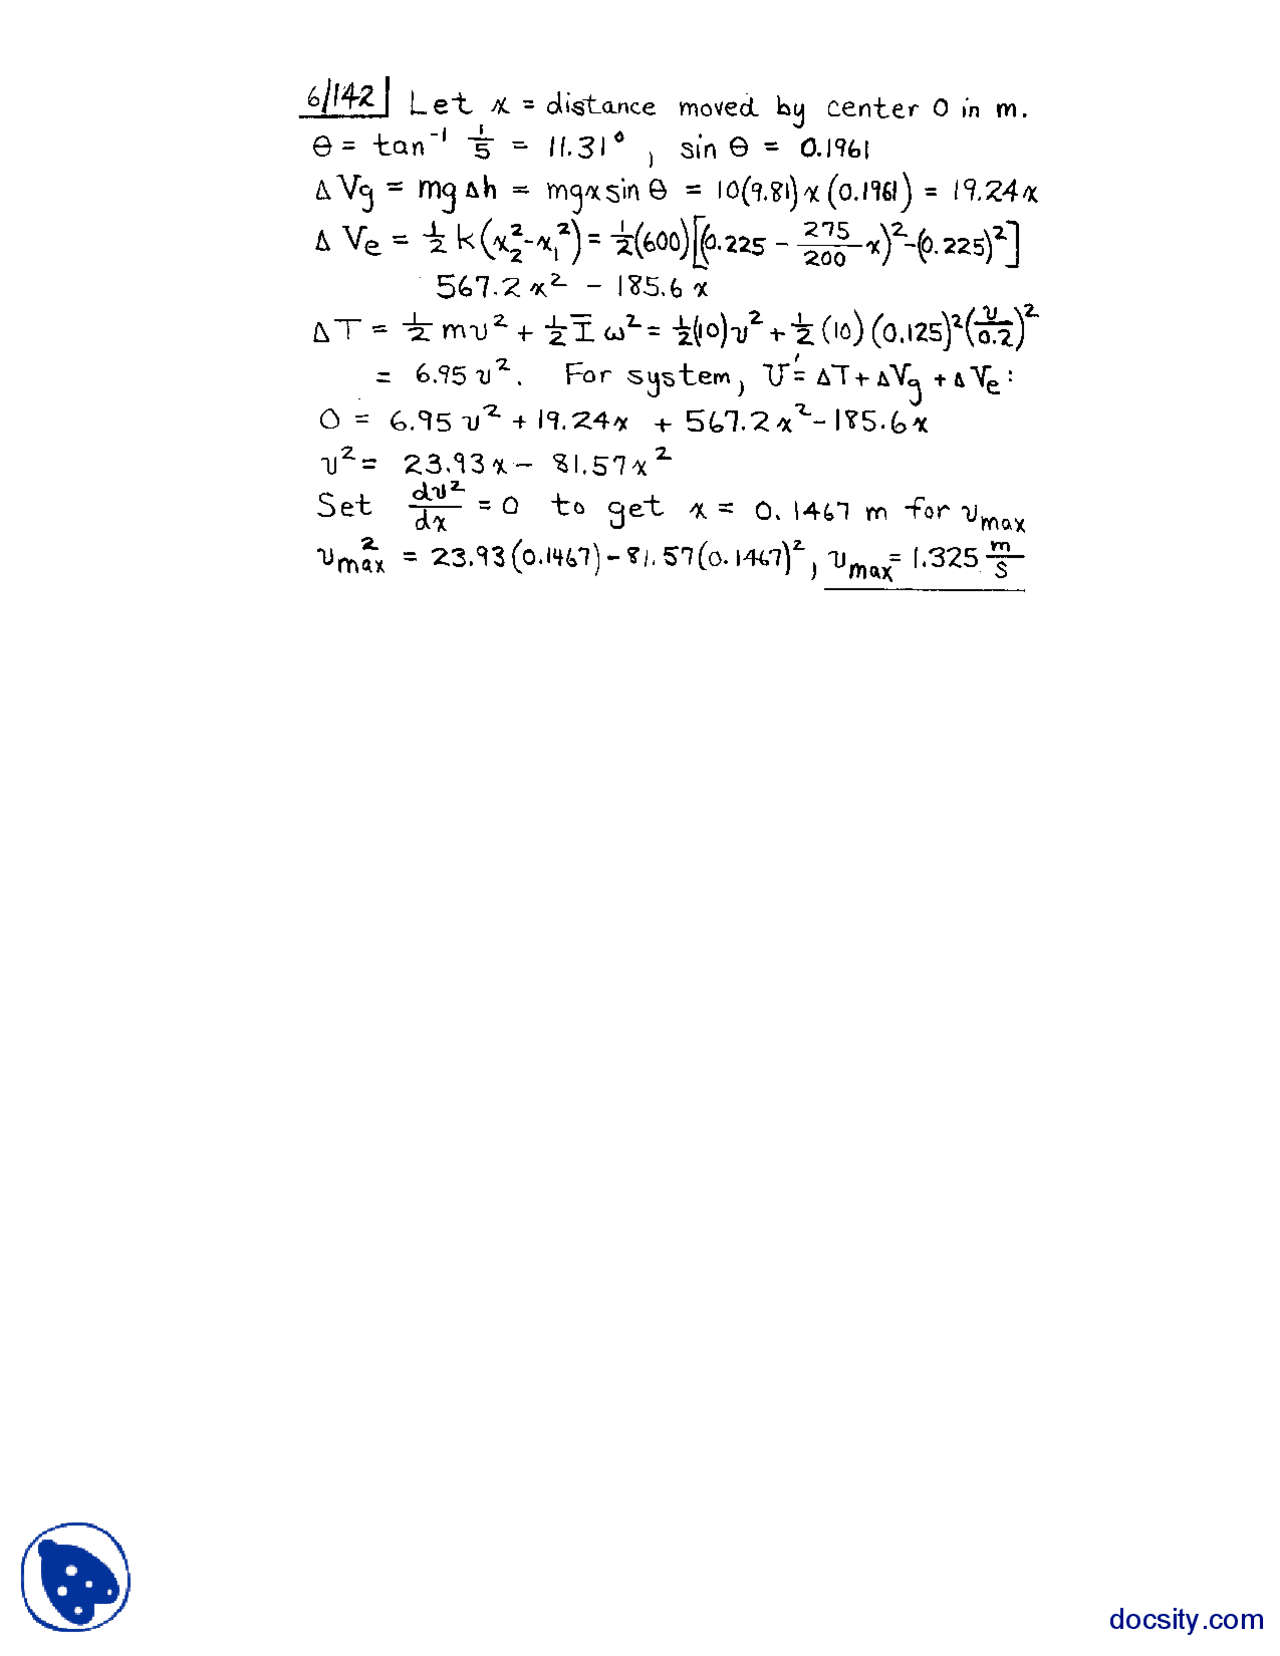 6/142 Let x = distance moved by center O in m.
θ = tan⁻¹ 1/5 = 11.31°, sin θ = 0.1961
ΔVg = mgΔh = mgx sin θ = 10(9.81)x(0.1961) = 19.24x
ΔVe = 1/2 k(x₂² - x₁²) = 1/2(600)[(0.225 - 275/200 x)² - (0.225)²]
567.2x² - 185.6x
ΔT = 1/2 mv² + 1/2 Ī ω² = 1/2(10)v² + 1/2(10)(0.125)²(v/0.2)²
= 6.95v². For system, U' = ΔT + ΔVg + ΔVe:
0 = 6.95v² + 19.24x + 567.2x² - 185.6x
v² = 23.93x - 81.57x²
Set dv²/dx = 0 to get x = 0.1467 m for vmax
vmax² = 23.93(0.1467) - 81.57(0.1467)², vmax = 1.325 m/s
docsity.com